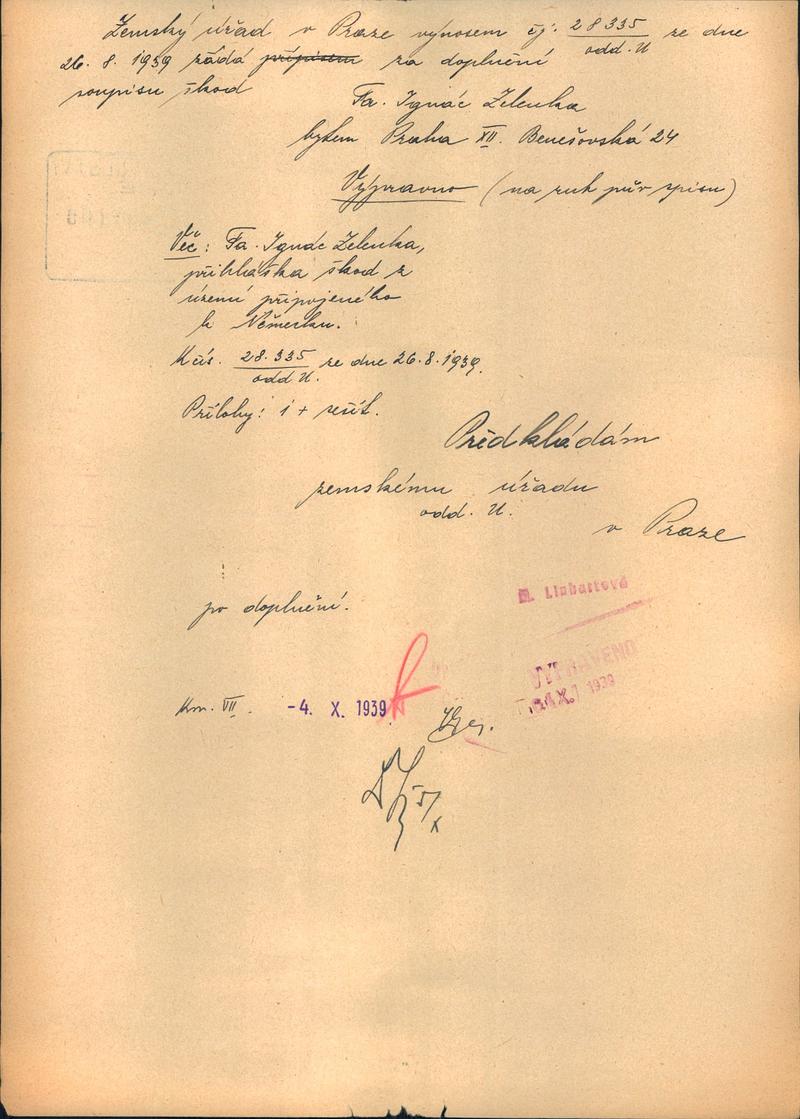 Zemský úřad v Praze výnosem čj. 28335/odd. U ze dne
26. 8. 1939 žádá přípisem za doplnění
soupisu škod
Fa. Ignác Zelenka
bytem Praha XII. Benešovská 24
Výpravno (na rub pův spisu)
Věc: Fa. Ignác Zelenka,
přihláška škod z
území připojeného
k Německu.
K čís. 28.335/odd U. ze dne 26.8.1939.
Přílohy: 1 + sešit.
Předkládám
zemskému úřadu
odd. U.
v Praze
po doplnění.
M. Linhartová
VYPRAVENO
X. 1939
Km. VII. -4. X. 1939
5/X